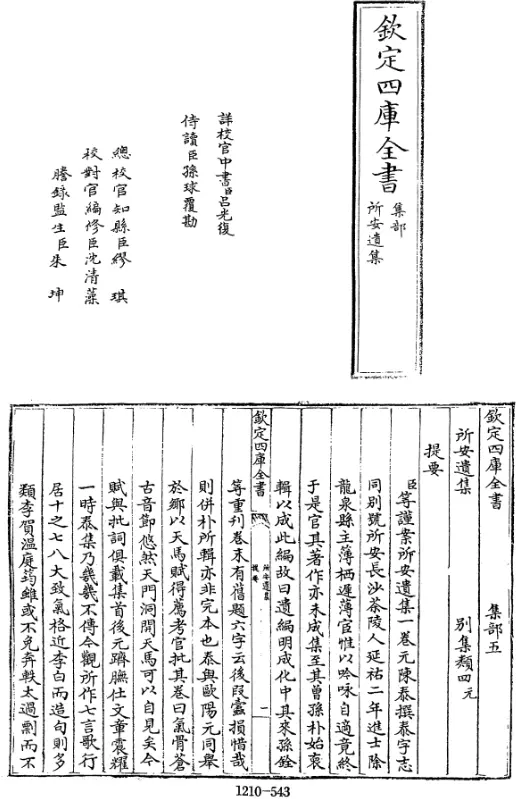 欽定四庫全書
集部
所安遺集
詳校官中書臣呂光復
侍讀臣孫球覆勘
總校官知縣臣繆琪
校對官編修臣沈清藻
謄錄監生臣朱坤
欽定四庫全書
集部五
所安遺集
別集類四元
提要
臣等謹案所安遺集一卷元陳泰撰泰字志
同別號所安長沙茶陵人延祐二年進士除
龍泉縣主薄栖遲薄宦惟以吟咏自適竟終
于是官其著作亦未成集至其曾孫朴始裒
輯以成此編故曰遺編明成化中其來孫銓
欽定四庫全書
所安遺集
提要
一
等重刊卷末有舊題六字云後段蠹損惜哉
則併朴所輯亦非完本也泰與歐陽元同舉
於鄉以天馬賦得薦考官批其卷曰氣骨蒼
古音節悠然天門洞開天馬可以自見矣今
賦與批詞俱載集首後元躋膴仕文章震耀
一時泰集乃幾幾不傳今觀所作七言歌行
居十之七八大致氣格近李白而造句則多
類李賀溫庭筠雖或不免奔軼太過剽而不
1210-543